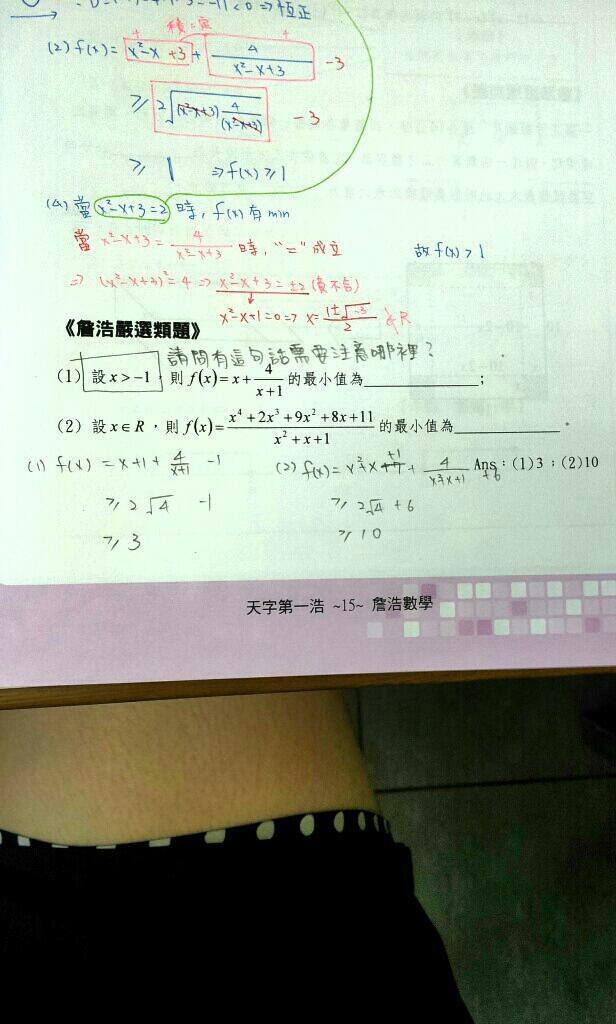 <0 ⇒恆正
積=定
(2) f(x)= x²-x+3 + 4/(x²-x+3) -3
≥ 2√((x²-x+3) 4/(x²-x+3)) -3
≥ 1 ⇒f(x)≥1
當 x²-x+3=2 時, f(x)有min
當 x²-x+3 = 4/(x²-x+3) 時, "=" 成立 故 f(x)>1
⇒ (x²-x+3)²=4 ⇒ x²-x+3=±2 (負不合)
x²-x+1=0 ⇒ x= (1±√-3)/2 ∉R
《詹浩嚴選類題》
請問有這句話需要注意哪裡?
(1) 設 x>-1，則 f(x)=x+4/(x+1) 的最小值為____________;
(2) 設 x∈R，則 f(x)=(x⁴+2x³+9x²+8x+11)/(x²+x+1) 的最小值為____________。
Ans：(1)3；(2)10
(1) f(x) = x+1+ 4/(x+1) -1
≥ 2√4 -1
≥ 3
(2) f(x)= x²+x+1 + 4/(x²+x+1) +6
≥ 2√4 +6
≥ 10
天字第一浩 ~15~ 詹浩數學